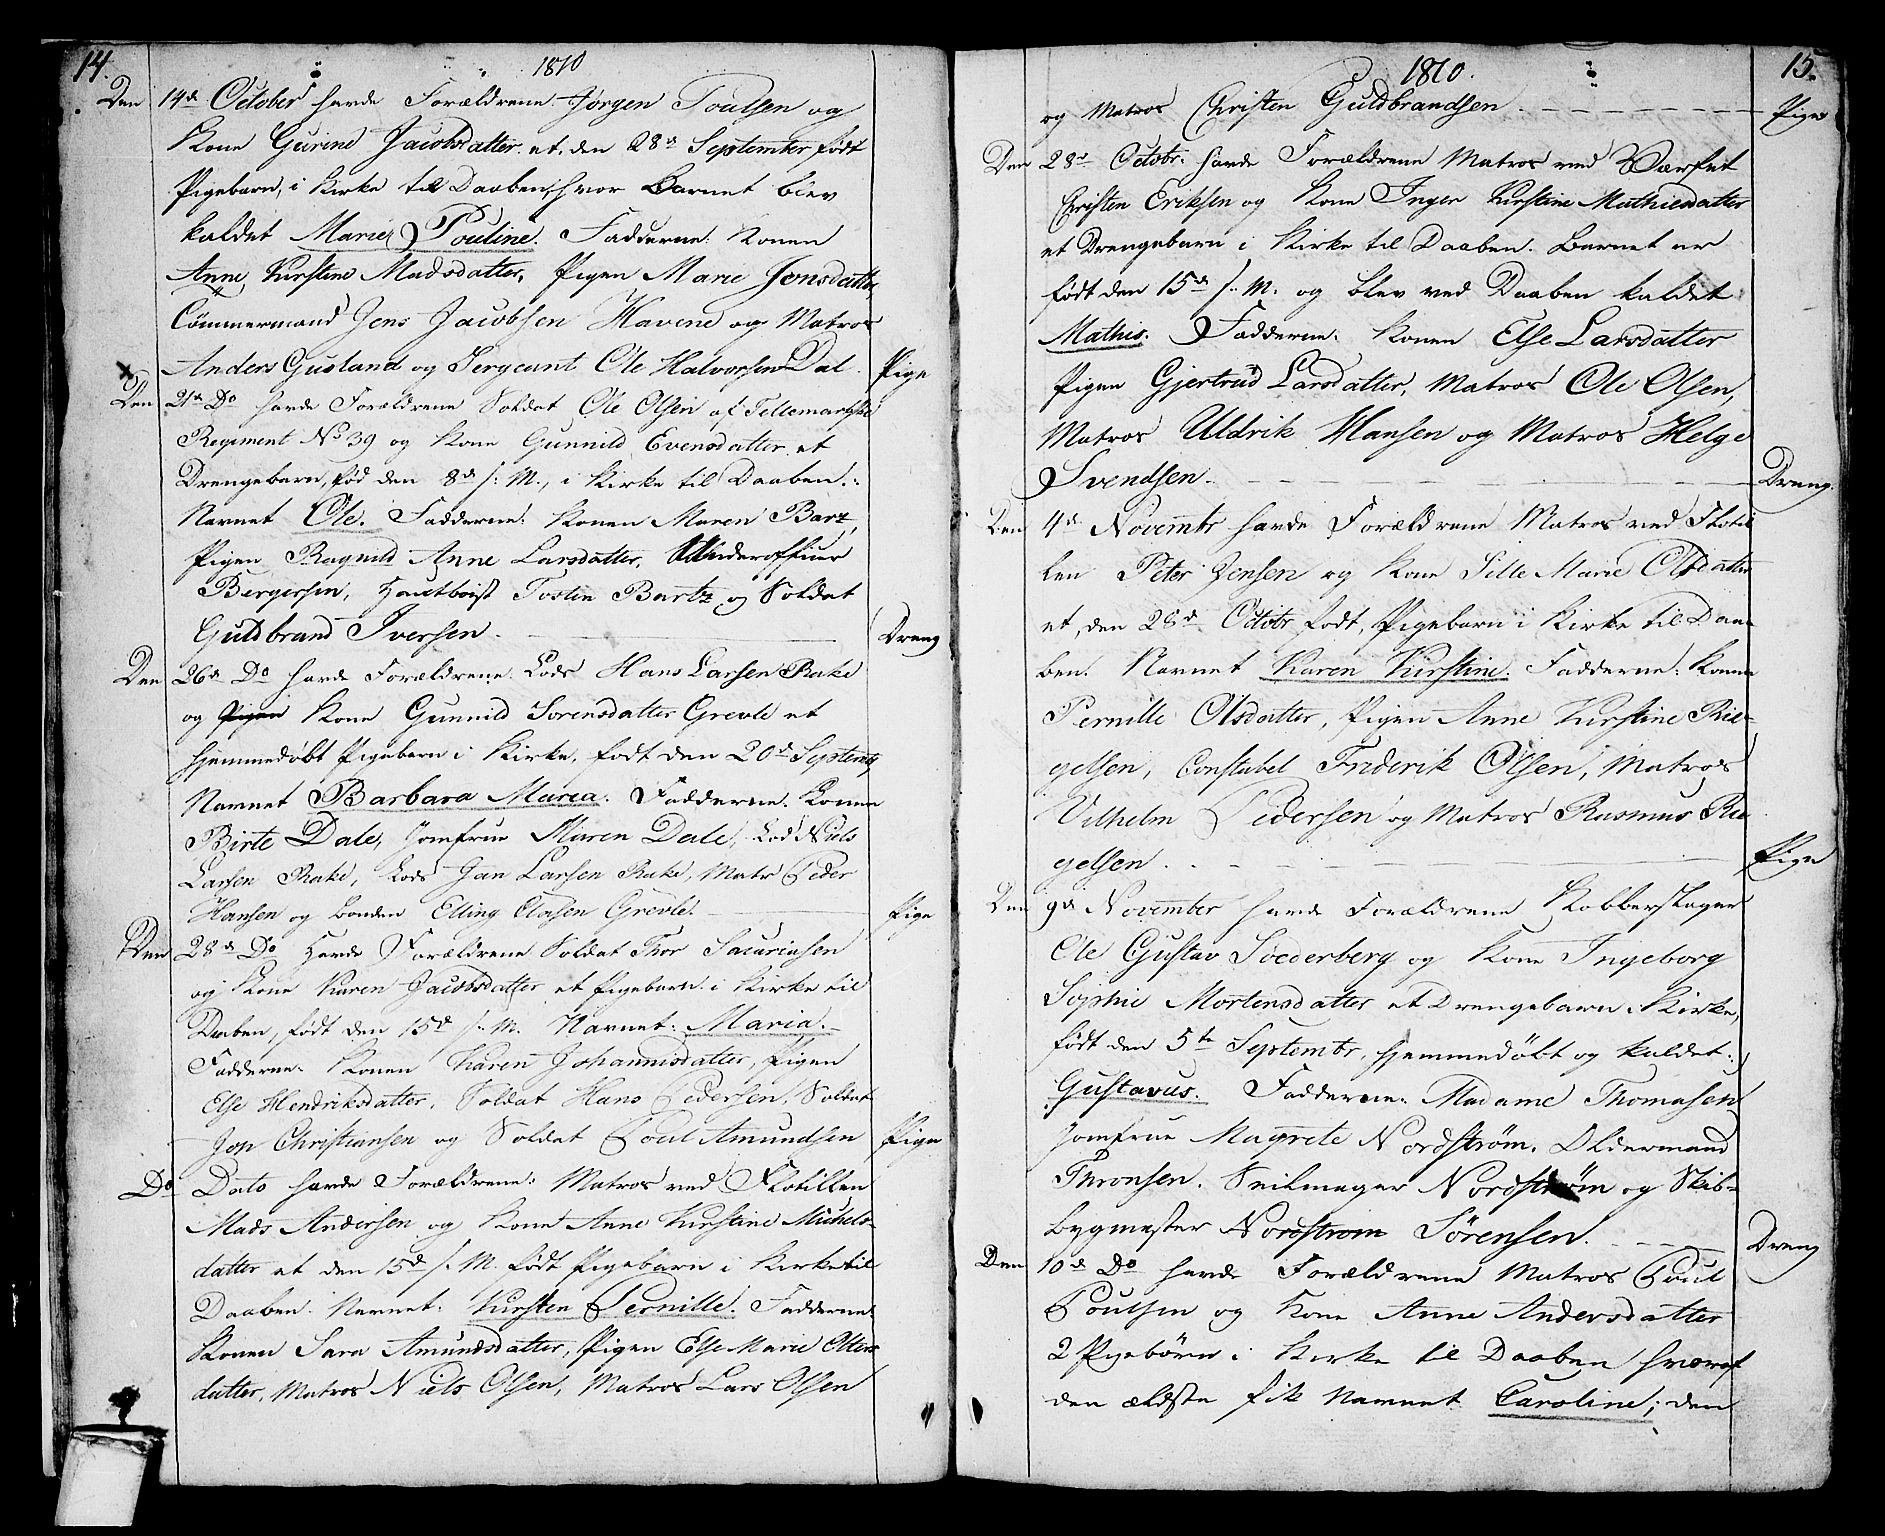 14.
1810
Den 14de October havde Forældrene: Jørgen Poulsen og
Kone Gurine Jacobsdatter et, den 28de September født
Pigebarn, i Kirke til Daaben, hvor Barnet blev
kaldet Marie Pouline. Fadderne: Konen
Anne Kirstine Madsdatter, Pigen Marie Jonsdatter,
Tømmermand Jens Jacobsen Havene og Matros
Anders Gusland og Sergeant Ole Halvorsen Dal. Pige
Den 21de Do havde Forældrene Soldat Ole Olsen af Tellemarkske
Regiment No 39 og Kone Gunnild Evensdatter et
Drengebarn, fød den 8de s: M., i Kirke til Daaben.
Navnet Ole. Fadderne: Konen Maren Bartz,
Pigen Ragnild Anne Larsdatter, Underofficer
Bergersen, Hautboist Tosten Bartz og Soldat
Guldbrand Iversen. Dreng
Den 26de Do havde Forældrene Lods Hans Larsen Rake
og Pigen Kone Gunnild Sørensdatter Grevle et
hjemmedøbt Pigebarn i Kirke, født den 20de Septemb.
Navnet Barbara Maria. Fadderne: Konen
Birte Dale, Jomfrue Maren Dale, Lods Niels
Larsen Rake, Lods Jan Larsen Rake, Matr Peder
Hansen og Bonden Elling Olasen Grevle. Pige
Den 28de Do havde Forældrene Soldat Thor Sacariasen
og Kone Karen Jacobsdatter et Pigebarn i Kirke til
Daaben, født den 15de s: M. Navnet: Maria.
Fadderne: Konen Karen Johannisdatter, Pigen
Else Hendriksdatter, Soldat Hans Pedersen, Soldat
Jon Christiansen og Soldat Poul Amundsen Pige
Do Dato havde Forældrene: Matros ved Flotillen
Mads Andersen og Kone Anne Kirstine Michels-
datter et den 15de s: M. født Pigebarn i Kirke til
Daaben. Navnet: Kirsten Pernille. Fadderne:
Konen Sara Amundsdatter, Pigen Else Marie Olters
datter, Matros Niels Olsen, Matros Lars Olsen
1810.
15.
og Matros Christen Guldbrandsen. Pige
Den 28de Octobr. havde Forældrene Matros ved Værfet
Christen Eriksen og Kone Inger Kirstine Mathiesdatter
et Drengebarn i Kirke til Daaben. Barnet er
født den 15de s: M. og blev ved Daaben kaldet
Mathis. Fadderne: Konen Else Larsdatter
Pigen Gjertrud Larsdatter, Matros Ole Olsen,
Matros Uldrik Hansen og Matros Helge
Svendsen. Dreng.
Den 4de Novembr havde Forældrene Matros ved Flotil
len Peter Jensen og Kone Sille Marie Olsdatter
et, den 28de Octobr født, Pigebarn i Kirke til Daa-
ben. Navnet Karen Kirstine. Fadderne: Konen
Pernille Olsdatter, Pigen Anne Kirstine Rie-
gelsen, Constabel Friderik Olsen, Matros
Vilhelm Pedersen og Matros Rasmus Rie-
gelsen. Pige
Den 9de November havde Forældrene Kobberslager
Ole Gustav Söederberg og Kone Ingeborg
Sophie Mortensdatter et Drengebarn i Kirke,
født den 5te Septembr, hjemmedøbt og kaldet:
Gustavus. Fadderne: Madame Thomasen
Jomfrue Magrete Nordstrøm. Oldermand
Thronsen. Seilmager Nordstrøm og Skib-
bygmester Nordstrom Sörensen. Dreng
Den 10de Do havde Forældrene Matros Poul
Poulsen og Kone Anne Andersdatter
2 Pigebörn i Kirke til Daaben hvoraf
den ældste fik Navnet Caroline; den